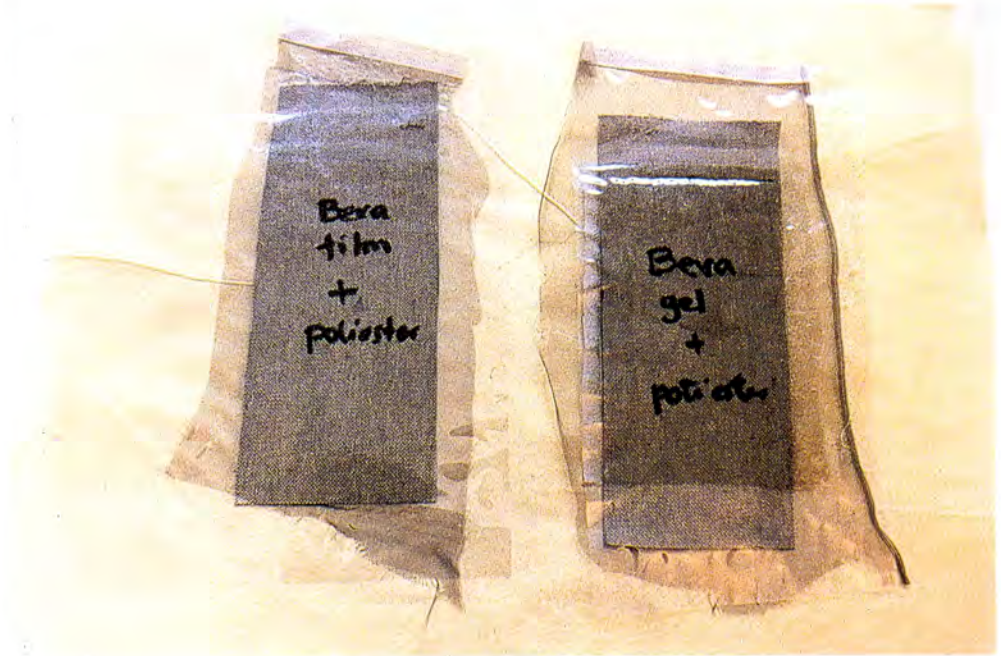 Beva
film
+
poliester
Beva
gel
+
poliester